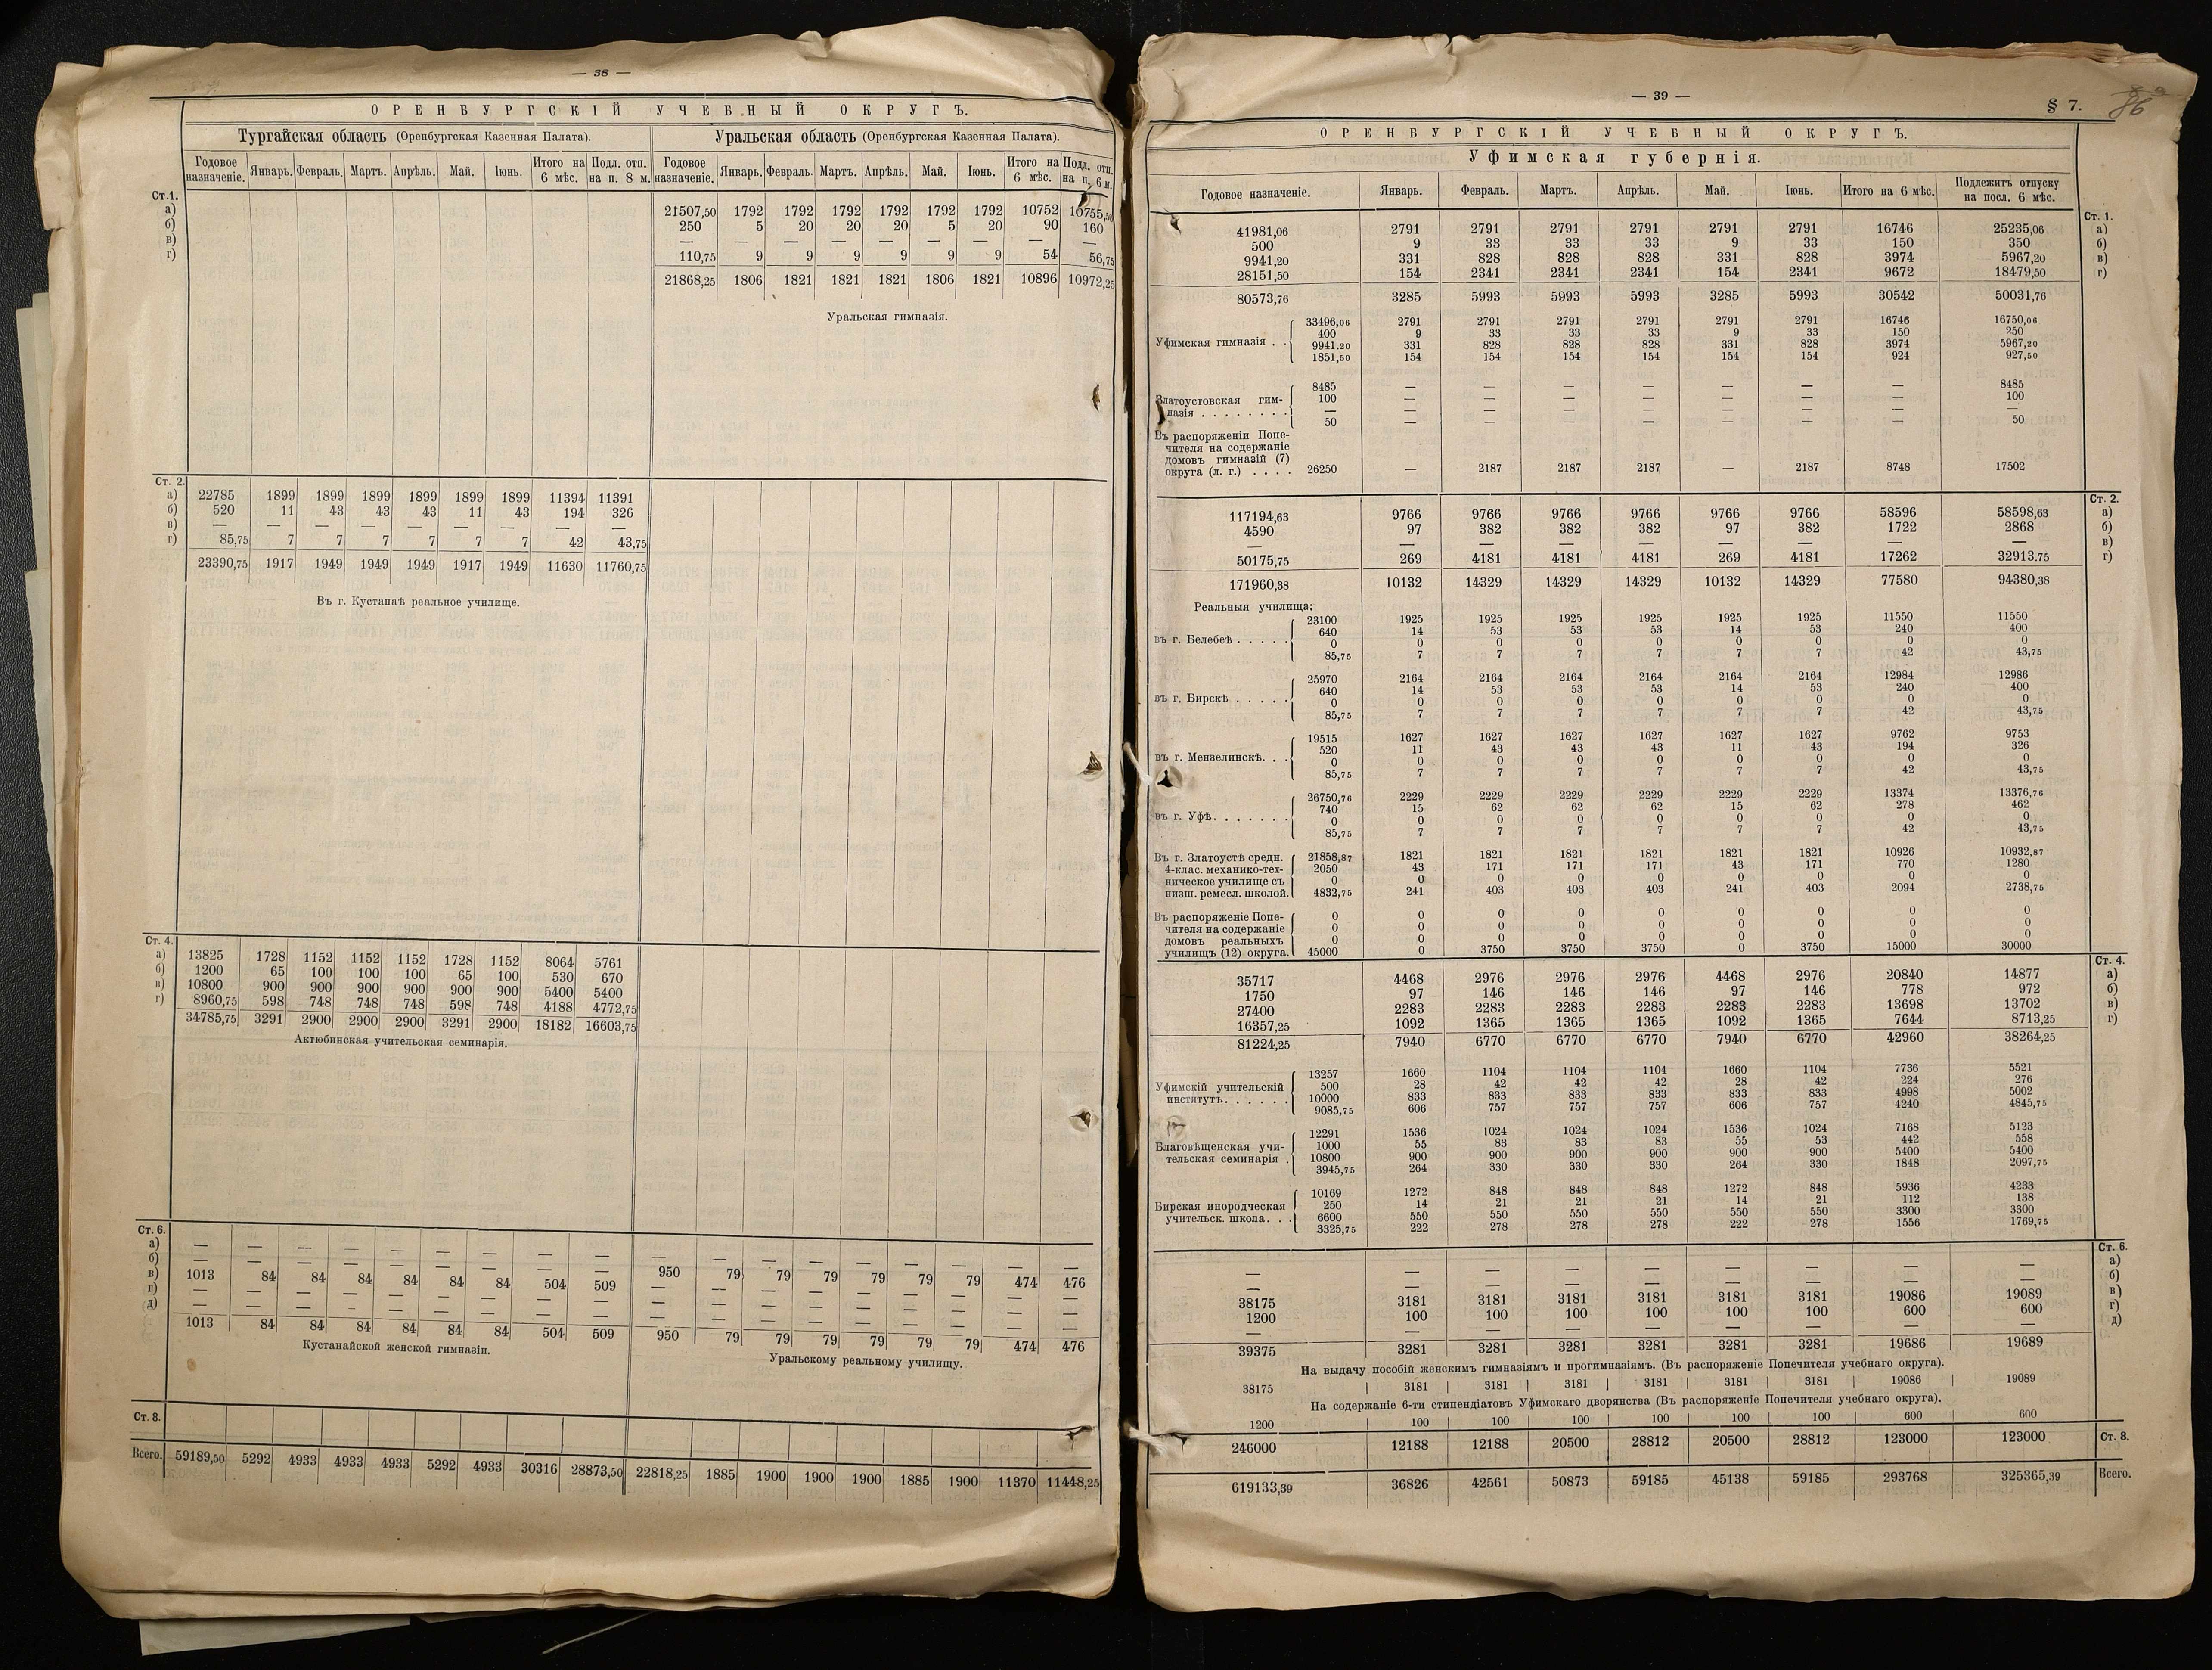 — 38 —
ОРЕНБУРГСКІЙ УЧЕБНЫЙ ОКРУГЪ.
Тургайская область (Оренбургская Казенная Палата). Уральская область (Оренбургская Казенная Палата).
Годовое назначеніе. Январь. Февраль. Мартъ. Апрѣль. Май. Іюнь. Итого на 6 мѣс. Подл. отп. на п. 8 м. Годовое назначеніе. Январь. Февраль. Мартъ. Апрѣль. Май. Іюнь. Итого на 6 мѣс. Подл. отп. на п. 6 м.
Ст.1.
а) 21507,50 1792 1792 1792 1792 1792 1792 10752 10755,50
б) 250 5 20 20 20 5 20 90 160
в) — — — — — — — — —
г) 110,75 9 9 9 9 9 9 54 56,75
21868,25 1806 1821 1821 1821 1806 1821 10896 10972,25
Уральская гимназія.
Ст. 2.
а) 22785 1899 1899 1899 1899 1899 1899 11394 11391
б) 520 11 43 43 43 11 43 194 326
в) — — — — — — — — —
г) 85,75 7 7 7 7 7 7 42 43,75
23390,75 1917 1949 1949 1949 1917 1949 11630 11760,75
Въ г. Кустанаѣ реальное училище.
Ст. 4.
а) 13825 1728 1152 1152 1152 1728 1152 8064 5761
б) 1200 65 100 100 100 65 100 530 670
в) 10800 900 900 900 900 900 900 5400 5400
г) 8960,75 598 748 748 748 598 748 4188 4772,75
34785,75 3291 2900 2900 2900 3291 2900 18182 16603,75
Актюбинская учительская семинарія.
Ст. 6.
а) — — — — — — — — — — — — — — — — — —
б) — — — — — — — — —
в) 1013 84 84 84 84 84 84 504 509 950 79 79 79 79 79 79 474 476
г) — — — — — — — — — — — — — — — — — —
д) — — — — — — — — — — — — — — — — — —
1013 84 84 84 84 84 84 504 509 950 79 79 79 79 79 79 474 476
Кустанайской женской гимназіи. Уральскому реальному училищу.
Ст. 8.
Всего. 59189,50 5292 4933 4933 4933 5292 4933 30316 28873,50 22818,25 1885 1900 1900 1900 1885 1900 11370 11448,25
— 39 —
§ 7.
86
ОРЕНБУРГСКІЙ УЧЕБНЫЙ ОКРУГЪ.
Уфимская губернія.
Годовое назначеніе. Январь. Февраль. Мартъ. Апрѣль. Май. Іюнь. Итого на 6 мѣс. Подлежитъ отпуску на посл. 6 мѣс.
Ст. 1.
41981,06 2791 2791 2791 2791 2791 2791 16746 25235,06 а)
500 9 33 33 33 9 33 150 350 б)
9941,20 331 828 828 828 331 828 3974 5967,20 в)
28151,50 154 2341 2341 2341 154 2341 9672 18479,50 г)
80573,76 3285 5993 5993 5993 3285 5993 30542 50031,76
33496,06 2791 2791 2791 2791 2791 2791 16746 16750,06
400 9 33 33 33 9 33 150 250
Уфимская гимназія . . 9941.20 331 828 828 828 331 828 3974 5967,20
1851,50 154 154 154 154 154 154 924 927,50
8485 — — — — — — — 8485
Златоустовская гим- 100 — — — — — — — 100
назія . . . . . . . . — — — — — — — — —
50 — — — — — — — 50
Въ распоряженіи Попе-
чителя на содержаніе
домовъ гимназій (7)
округа (л. г.) . . . . 26250 — 2187 2187 2187 — 2187 8748 17502
Ст. 2.
117194,63 9766 9766 9766 9766 9766 9766 58596 58598,63 а)
4590 97 382 382 382 97 382 1722 2868 б)
— — — — — — — — — в)
50175,75 269 4181 4181 4181 269 4181 17262 32913.75 г)
171960,38 10132 14329 14329 14329 10132 14329 77580 94380,38
Реальныя училища:
23100 1925 1925 1925 1925 1925 1925 11550 11550
въ г. Белебеѣ . . . . . 640 14 53 53 53 14 53 240 400
0 0 0 0 0 0 0 0 0
85,75 7 7 7 7 7 7 42 43,75
25970 2164 2164 2164 2164 2164 2164 12984 12986
въ г. Бирскѣ . . . . . 640 14 53 53 53 14 53 240 400
0 0 0 0 0 0 0 0 0
85,75 7 7 7 7 7 7 42 43,75
19515 1627 1627 1627 1627 1627 1627 9762 9753
въ г. Мензелинскѣ. . . 520 11 43 43 43 11 43 194 326
0 0 0 0 0 0 0 0 0
85,75 7 7 7 7 7 7 42 43,75
26750,76 2229 2229 2229 2229 2229 2229 13374 13376,76
въ г. Уфѣ. . . . . . . 740 15 62 62 62 15 62 278 462
0 0 0 0 0 0 0 0 0
85,75 7 7 7 7 7 7 42 43,75
Въ г. Златоустѣ средн. 21858,87 1821 1821 1821 1821 1821 1821 10926 10932,87
4-клас. механико-тех- 2050 43 171 171 171 43 171 770 1280
ническое училище съ 0 0 0 0 0 0 0 0 0
низш. ремесл. школой. 4832,75 241 403 403 403 241 403 2094 2738,75
Въ распоряженіе Попе- 0 0 0 0 0 0 0 0 0
чителя на содержаніе 0 0 0 0 0 0 0 0 0
домовъ реальныхъ 0 0 0 0 0 0 0 0 0
училищъ (12) округа. 45000 0 3750 3750 3750 0 3750 15000 30000
Ст. 4.
35717 4468 2976 2976 2976 4468 2976 20840 14877 а)
1750 97 146 146 146 97 146 778 972 б)
27400 2283 2283 2283 2283 2283 2283 13698 13702 в)
16357,25 1092 1365 1365 1365 1092 1365 7644 8713,25 г)
81224,25 7940 6770 6770 6770 7940 6770 42960 38264,25
13257 1660 1104 1104 1104 1660 1104 7736 5521
Уфимскій учительскій 500 28 42 42 42 28 42 224 276
институтъ. . . . . . 10000 833 833 833 833 833 833 4998 5002
9085,75 606 757 757 757 606 757 4240 4845,75
12291 1536 1024 1024 1024 1536 1024 7168 5123
Благовѣщенская учи- 1000 55 83 83 83 55 53 442 558
тельская семинарія . 10800 900 900 900 900 900 900 5400 5400
3945,75 264 330 330 330 264 330 1848 2097,75
10169 1272 848 848 848 1272 848 5936 4233
Бирская инородческая 250 14 21 21 21 14 21 112 138
учительск. школа. . . 6600 550 550 550 550 550 550 3300 3300
3325,75 222 278 278 278 222 278 1556 1769,75
Ст. 6.
— — — — — — — — — а)
— — — — — — — — — б)
38175 3181 3181 3181 3181 3181 3181 19086 19089 в)
1200 100 100 100 100 100 100 600 600 г)
— — — — — — — — — д)
39375 3281 3281 3281 3281 3281 3281 19686 19689
На выдачу пособій женскимъ гимназіямъ и прогимназіямъ. (Въ распоряженіе Попечителя учебнаго округа).
38175 3181 3181 3181 3181 3181 3181 19086 19089
На содержаніе 6-ти стипендіатовъ Уфимскаго дворянства (Въ распоряженіе Попечителя учебнаго округа).
1200 100 100 100 100 100 100 600 600
246000 12188 12188 20500 28812 20500 28812 123000 123000 Ст. 8.
619133,39 36826 42561 50873 59185 45138 59185 293768 325365,39 Всего.